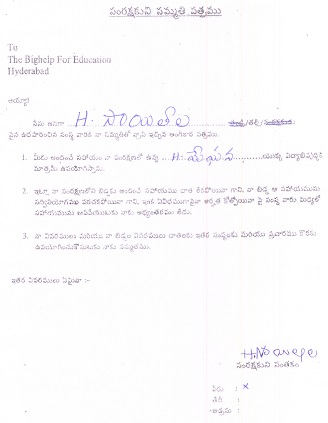 సంరక్షకుని సమ్మతి పత్రము
To
The Bighelp For Education
Hyderabad
అయ్యా!
నేను అనగా H. సాయిలు తండ్రి/తల్లి/సంరక్షకుడు
పైన ఉదహరించిన సంస్థ వారికి నా సమ్మతితో వ్రాసి ఇచ్చిన అంగీకార పత్రము.
1. మీరు అందించే సహాయం నా సంరక్షణలో ఉన్న H. మేఘన యొక్క విద్యాభివృద్ధికి
మాత్రమే ఉపయోగిస్తాను.
2. ఇట్లూ నా సంరక్షణలోని బిడ్డకు అందించే సహాయము దాత లేకపోయినా గాని, నా బిడ్డ ఆ సహాయమును
సహాయమును ఆపివేయుటకు నాకు అభ్యంతరము లేదు.
3. నా వివరములు మరియు నా బిడ్డల వివరములు దాతలకు ఇతర సంస్థలకు మరియు ప్రచారము కొరకు
ఉపయోగించుకొనుటకు నాకు సమ్మతము.
ఇతర వివరములు ఏమైనా :-
సంరక్షకుని సంతకం
పేరు : x
తేది :